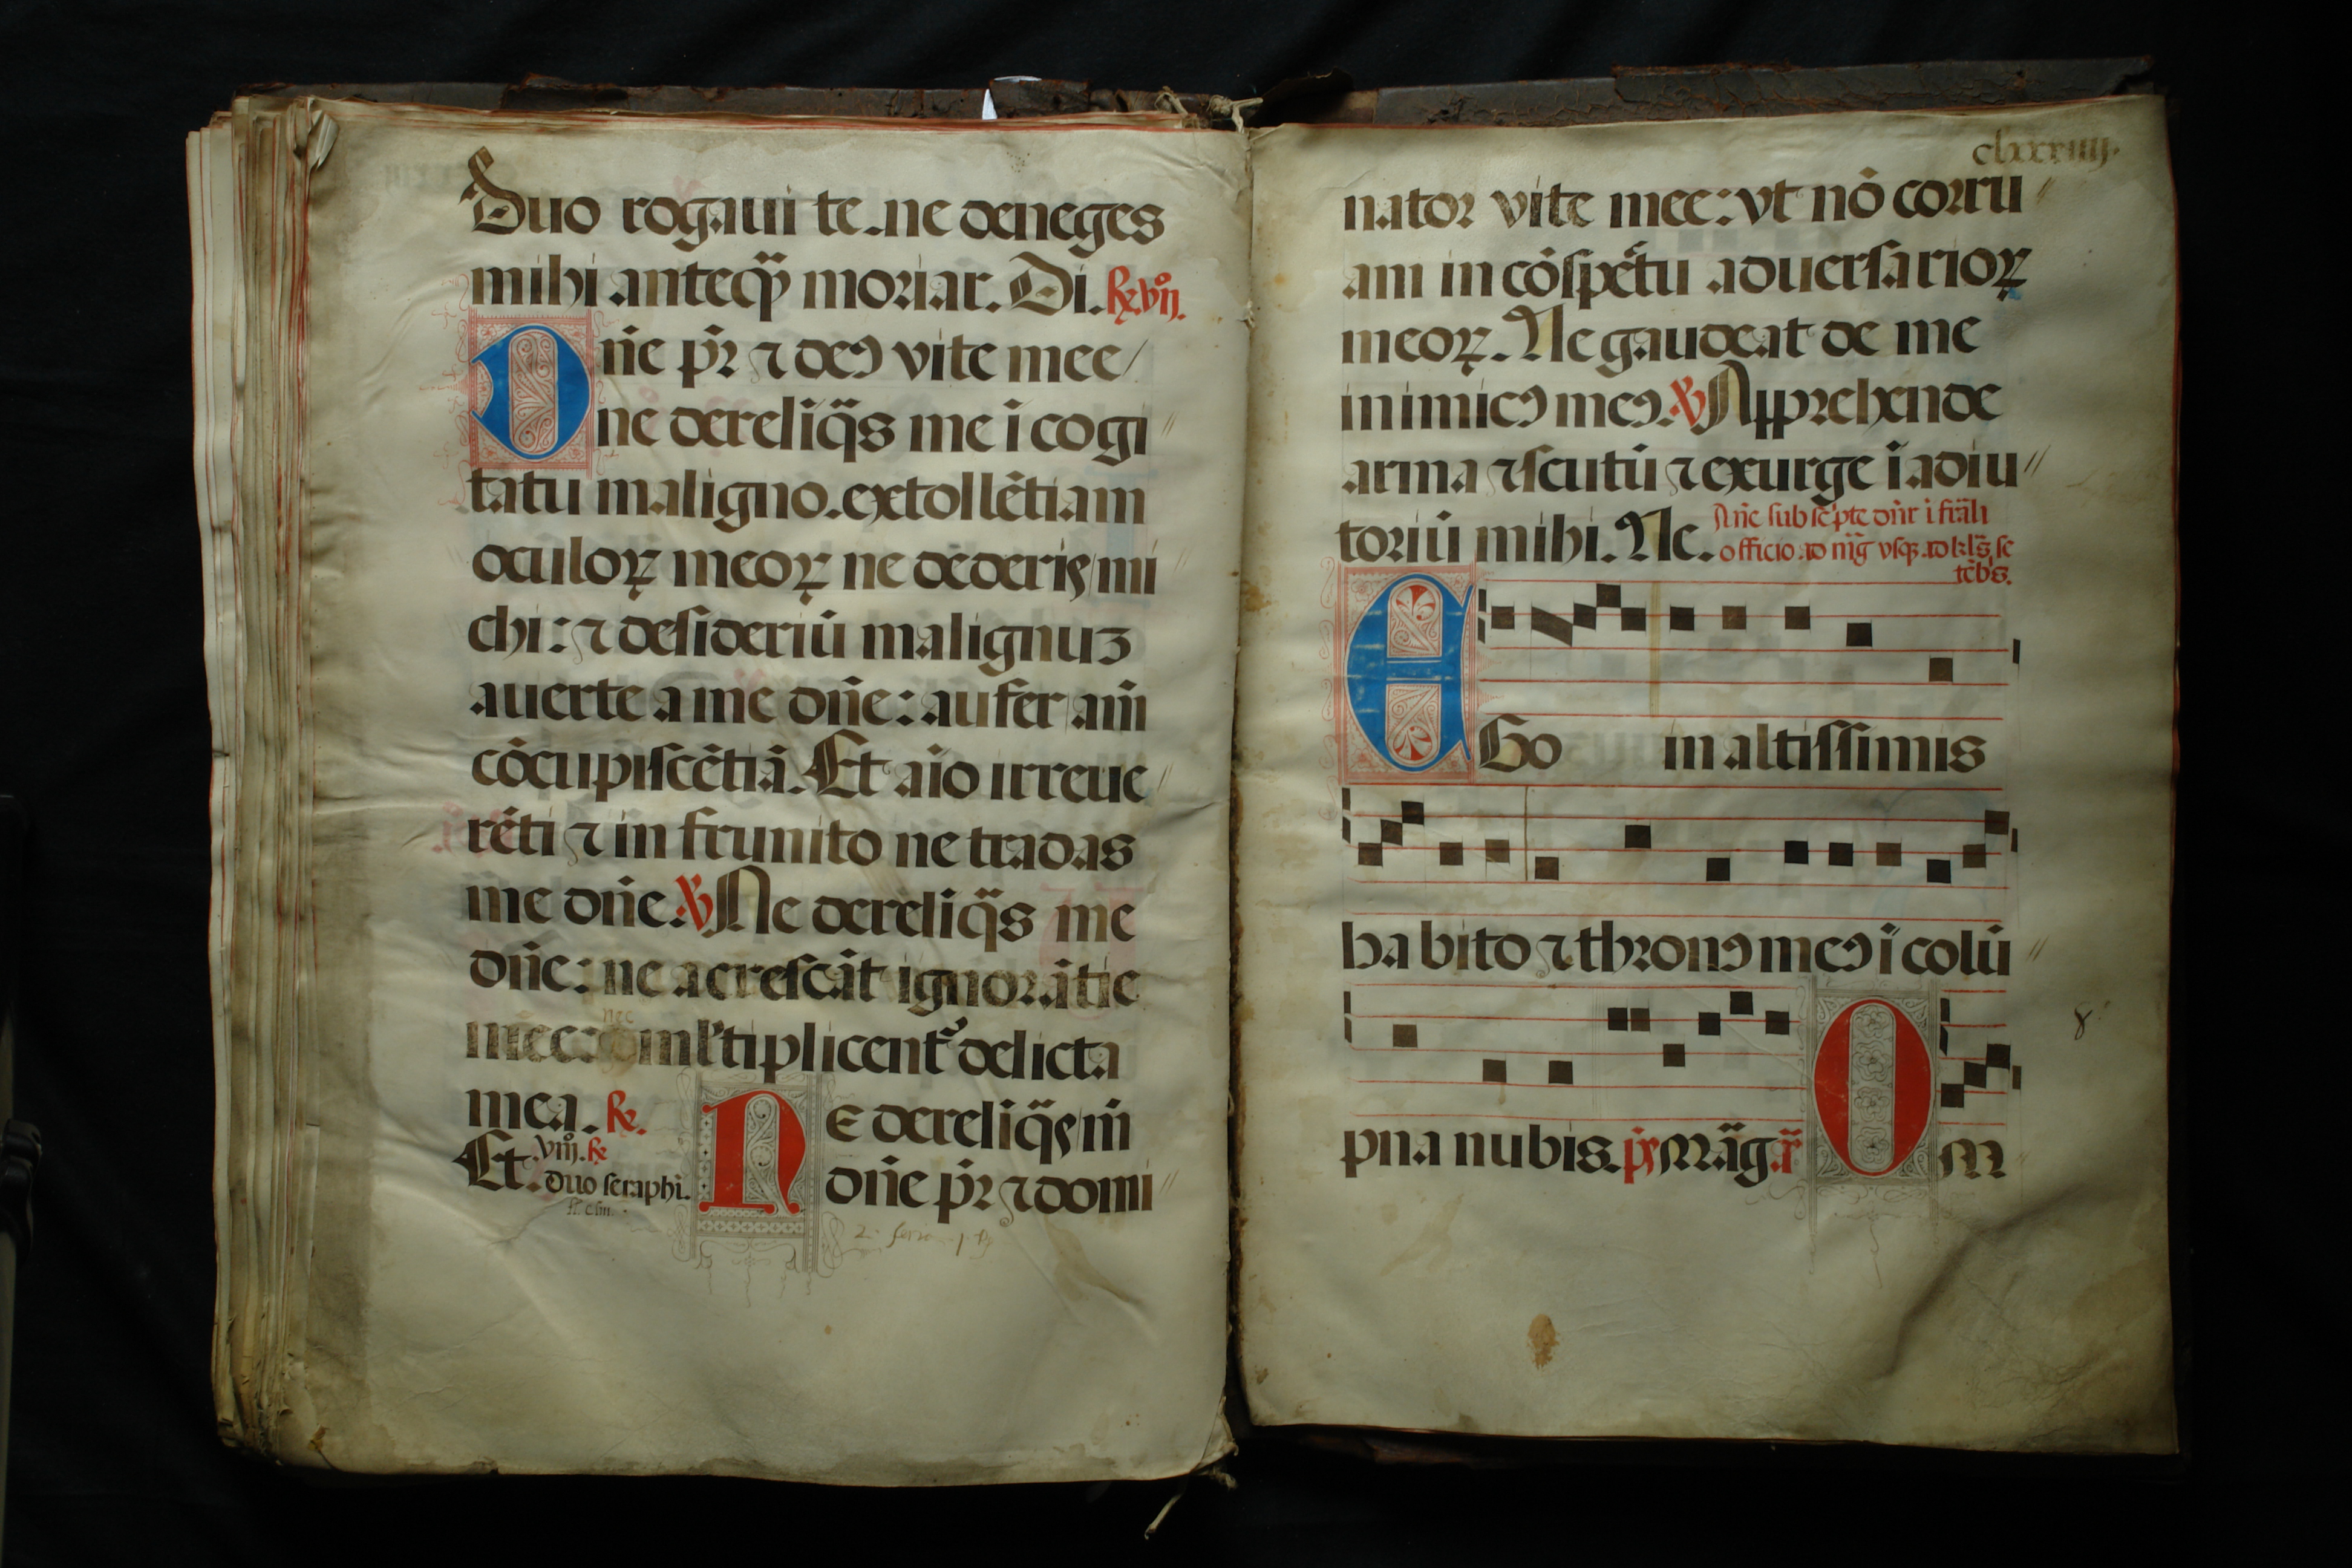 Duo rogaui te.ne deneges
mihi anteqȝ moriar. Di. ℞.vij.
Dn̄e pr̄ ⁊ deꝰ vite mee/
ne dereliq̄s me i cogi//
tatu maligno.extollētiam
oculoꝝ meoꝝ ne dederis mi
chi: ⁊ desideriū malignuz
auerte a me dn̄e: aufer am̄
cōcupiscētiā. Et aīo irreue/
rēti ⁊ in frunito ne tradas
me dn̄e. ℣ Ne dereliq̄s me
dn̄e: ne acrescāt ignorātie
nec
mee: ml̄tiplicent᷑ delicta
mea. ℞. Ne dereliq̄s m̄
Et. viij. ℞
duo seraphi. dn̄e pr̄ ⁊ domi//
clxxxiiij.
nator vite mee: vt nō corru//
am in cōspētu aduersarioꝝ
meoꝝ. Ne gaudeat de me
inimicꝰ meꝰ. ℣ Apprehende
arma ⁊ scutū ⁊ exurge ī adiu//
toriū mihi. Ne. An̄e subsc̄pte dn̄r i fr̄ali
officio ad mg̅ vsqȝ ad kl̄s se
tēb's.
EGo in altissimis
habito ⁊ thronꝰ meꝰ ī colū//
8
pna nubis. ps̄ Māg. an̄ OM